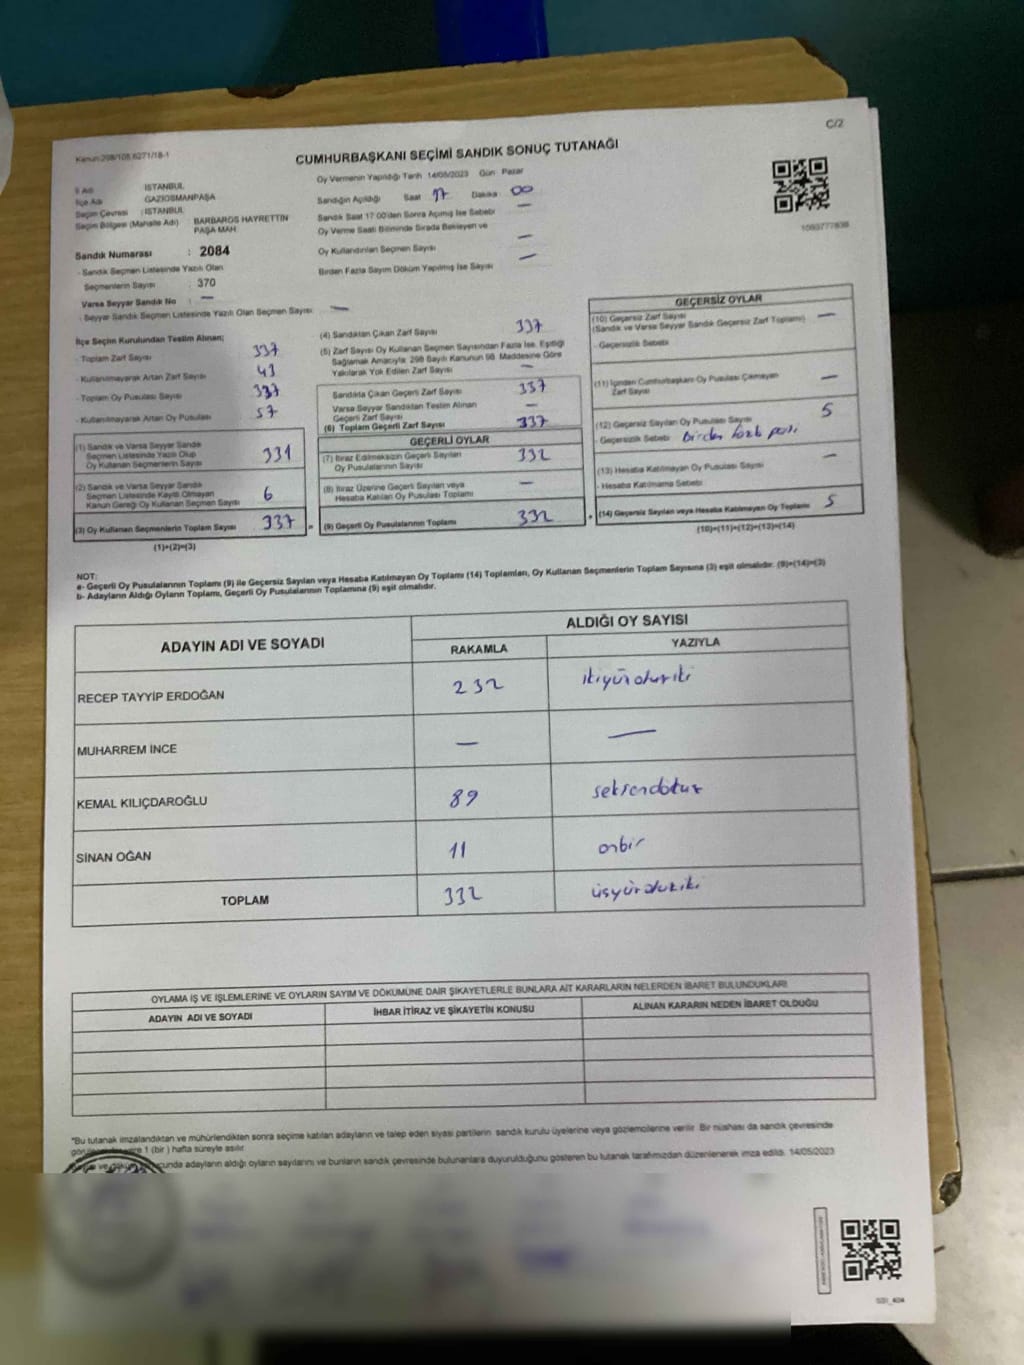 C/2
Kanun:298/105.6271/18-1
CUMHURBAŞKANI SEÇİMİ SANDIK SONUÇ TUTANAĞI
İl Adı : İSTANBUL
İlçe Adı : GAZİOSMANPAŞA
Seçim Çevresi : İSTANBUL
Seçim Bölgesi (Mahalle Adı) : BARBAROS HAYRETTİN PAŞA MAH.
Sandık Numarası : 2084
- Sandık Seçmen Listesinde Yazılı Olan
Seçmenlerin Sayısı : 370
Varsa Seyyar Sandık No : —
- Seyyar Sandık Seçmen Listesinde Yazılı Olan Seçmen Sayısı: —
Oy Vermenin Yapıldığı Tarih 14/05/2023 Gün Pazar
Sandığın Açıldığı Saat 17 Dakika : 00
Sandık Saat 17:00'den Sonra Açılmış İse Sebebi —
Oy Verme Saati Bitiminde Sırada Bekleyen ve
Oy Kullandırılan Seçmen Sayısı —
Birden Fazla Sayım Döküm Yapılmış İse Sayısı —
İlçe Seçim Kurulundan Teslim Alınan;
- Toplam Zarf Sayısı
- Kullanılmayarak Artan Zarf Sayısı 43
- Toplam Oy Pusulası Sayısı
- Kullanılmayarak Artan Oy Pusulası
(1) Sandık ve Varsa Seyyar Sandık
Seçmen Listesinde Yazılı Olup
Oy Kullanan Seçmenlerin Sayısı 331
(2) Sandık ve Varsa Seyyar Sandık
Seçmen Listesinde Kayıtlı Olmayan
Kanun Gereği Oy Kullanan Seçmen Sayısı 6
(3) Oy Kullanan Seçmenlerin Toplam Sayısı 337 =
(1)+(2)=(3)
(4) Sandıktan Çıkan Zarf Sayısı 337
(5) Zarf Sayısı Oy Kullanan Seçmen Sayısından Fazla İse, Eşitliği
Sağlamak Amacıyla; 298 Sayılı Kanunun 98. Maddesine Göre
Yakılarak Yok Edilen Zarf Sayısı —
Sandıkta Çıkan Geçerli Zarf Sayısı 337
Varsa Seyyar Sandıktan Teslim Alınan
Geçerli Zarf Sayısı —
(6) Toplam Geçerli Zarf Sayısı 337
GEÇERLİ OYLAR
(7) İtiraz Edilmeksizin Geçerli Sayılan
Oy Pusulalarının Sayısı 332
(8) İtiraz Üzerine Geçerli Sayılan veya
Hesaba Katılan Oy Pusulası Toplamı —
(9) Geçerli Oy Pusulalarının Toplamı 332 +
GEÇERSİZ OYLAR
(10) Geçersiz Zarf Sayısı
(Sandık ve Varsa Seyyar Sandık Geçersiz Zarf Toplamı) —
- Geçersizlik Sebebi
(11) İçinden Cumhurbaşkanı Oy Pusulası Çıkmayan
Zarf Sayısı —
(12) Geçersiz Sayılan Oy Pusulası Sayısı 5
- Geçersizlik Sebebi birden fazla
(13) Hesaba Katılmayan Oy Pusulası Sayısı —
- Hesaba Katılmama Sebebi
(14) Geçersiz Sayılan veya Hesaba Katılmayan Oy Toplamı 5
(10)+(11)+(12)+(13)=(14)
NOT:
a- Geçerli Oy Pusulalarının Toplamı (9) ile Geçersiz Sayılan veya Hesaba Katılmayan Oy Toplamı (14) Toplamları, Oy Kullanan Seçmenlerin Toplam Sayısına (3) eşit olmalıdır. (9)+(14)=(3)
b- Adayların Aldığı Oyların Toplamı, Geçerli Oy Pusulalarının Toplamına (9) eşit olmalıdır.
ADAYIN ADI VE SOYADI
ALDIĞI OY SAYISI
RAKAMLA YAZIYLA
RECEP TAYYİP ERDOĞAN 232 ikiyüzotuziki
MUHARREM İNCE — —
KEMAL KILIÇDAROĞLU 89 seksendokuz
SİNAN OĞAN 11 onbir
TOPLAM 332 üçyüzotuziki
OYLAMA İŞ VE İŞLEMLERİNE VE OYLARIN SAYIM VE DÖKÜMÜNE DAİR ŞİKAYETLERLE BUNLARA AİT KARARLARIN NELERDEN İBARET BULUNDUKLARI
ADAYIN ADI VE SOYADI İHBAR İTİRAZ VE ŞİKAYETİN KONUSU ALINAN KARARIN NEDEN İBARET OLDUĞU
*Bu tutanak imzalandıktan ve mühürlendikten sonra seçime katılan adayların ve talep eden siyasi partilerin sandık kurulu üyelerine veya gözlemcilerine verilir. Bir nüshası da sandık çevresinde
1 (bir) hafta süreyle asılır.
adayların aldığı oyların sayılarını ve bunların sandık çevresinde bulunanlara duyurulduğunu gösteren bu tutanak tarafımızdan düzenlenerek imza edildi. 14/05/2023